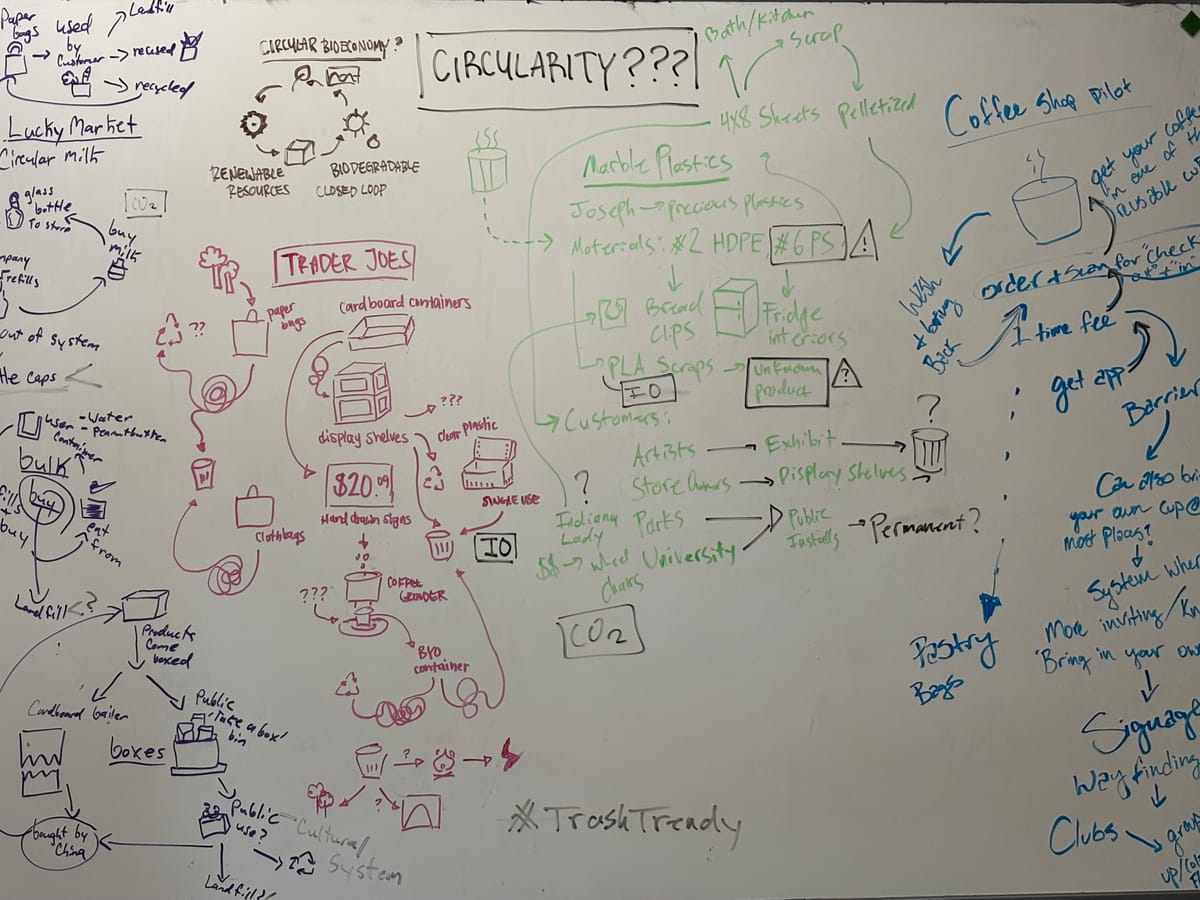 Paper
bags
used
by
Customer
Landfill
reused
recycled
Lucky Market
Circular milk
glass
bottle
To store
CO2
buy
milk
refills
out of system
caps
Water
Peanutbutter
Container
bulk
buy
buy
eat
from
Landfill <?
Products
Come
boxed
Cardboard bailer
Public
take a box/
bin
boxes
Public
use?
Cultural
System
bought by
China
Landfill?
CIRCULAR BIOECONOMY?
not
RENEWABLE
RESOURCES
BIODEGRADABLE
CLOSED LOOP
CIRCULARITY???
TRADER JOES
??
paper
bags
cardboard containers
display shelves
???
clear plastic
SINGLE USE
$20.09
Hand drawn signs
IO
Clothbags
???
COFFEE
GRINDER
BYO
container
?
?
#TrashTrendy
Bath/Kitchen
Scrap
4x8 Sheets
Pelletized
Marble Plastics
?
Joseph → precious plastics
Materials: #2 HDPE, #6 PS
!
Bread
Clips
Fridge
interiors
PLA Scraps → Unknown
product
?
IO
Customers:
Artists → Exhibit →
?
Store Owners → Display Shelves →
?
Indiana
Lady
Parks
Public
Installs
→ Permanent?
$$ →
University
chairs
CO2
Coffee Shop Pilot
get your coffee
in one of
reusable
order + Scan for "Check
out" + "in"
Wash
+ bring
Back
1 time fee
get app
Barrier
Can also
your own cup @
most places?
System
More inviting/
"Bring in your own
Signage
Way finding
Clubs
Pastry
Bags